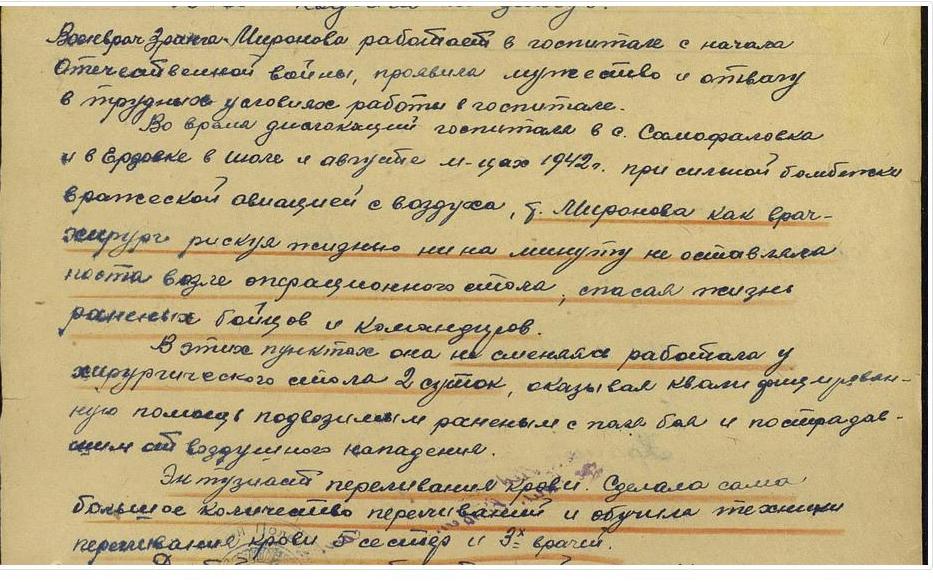 Военврач 3 ранга Миронова работает в госпитале с начала
Отечественной войны, проявила мужество и отвагу
в трудных условиях работы в госпитале.
Во время дислокаций госпиталя в с. Самофаловка
и в Ердовке в июле и августе м-цах 1942 г. при сильной бомбежки
вражеской авиацией с воздуха, т. Миронова как врач-
хирург рискуя жизнью ни на минуту не оставляла
поста возле операционного стола, спасая жизнь
раненых бойцов и командиров.
В этих пунктах она не сменяясь работала у
хирургического стола 2 суток, оказывая квалифицирован-
ную помощь подвозимым раненым с поля боя и пострадав-
шим от воздушного нападения.
Энтузиаст переливания крови. Сделала сама
большое количество переливаний и обучила техники
переливание крови 5 сестер и 3х врачей.